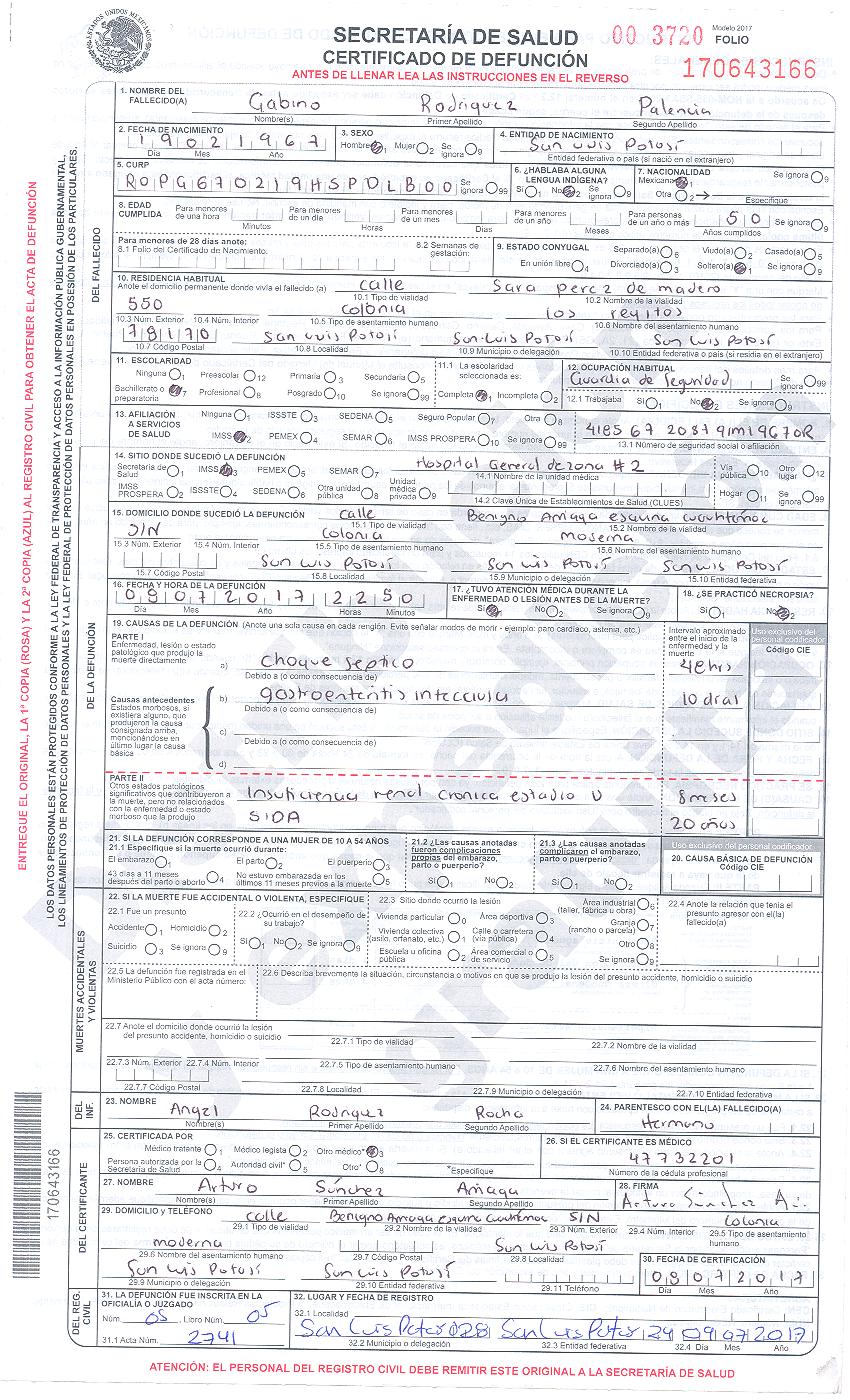 ESTADOS UNIDOS MEXICANOS
SECRETARÍA DE SALUD
CERTIFICADO DE DEFUNCIÓN
ANTES DE LLENAR LEA LAS INSTRUCCIONES EN EL REVERSO
00 3720
Modelo 2017
FOLIO
170643166
ENTREGUE EL ORIGINAL, LA 1ª COPIA (ROSA) Y LA 2ª COPIA (AZUL) AL REGISTRO CIVIL PARA OBTENER EL ACTA DE DEFUNCIÓN
LOS DATOS PERSONALES ESTÁN PROTEGIDOS CONFORME A LA LEY FEDERAL DE TRANSPARENCIA Y ACCESO A LA INFORMACIÓN PÚBLICA GUBERNAMENTAL,
LOS LINEAMIENTOS DE PROTECCIÓN DE DATOS PERSONALES Y LA LEY FEDERAL DE PROTECCIÓN DE DATOS PERSONALES EN POSESIÓN DE LOS PARTICULARES.
DEL FALLECIDO
1. NOMBRE DEL FALLECIDO(A) Gabino Rodriguez Palencia
Nombre(s) Primer Apellido Segundo Apellido
2. FECHA DE NACIMIENTO 19021967
Día Mes Año
3. SEXO Hombre 1 Mujer 2 Se ignora 9
4. ENTIDAD DE NACIMIENTO San Luis Potosí
Entidad federativa o país (si nació en el extranjero)
5. CURP ROPG670219HSPDLB00 Se ignora 99
6. ¿HABLABA ALGUNA LENGUA INDÍGENA? Sí 1 No 2 Se ignora 9
7. NACIONALIDAD Mexicana 1 Otra 2 Especifique Se ignora 9
8. EDAD CUMPLIDA Para menores de una hora Minutos Para menores de un día Horas Para menores de un mes Días Para menores de un año Meses Para personas de un año o más 50 Años cumplidos Se ignora 9
Para menores de 28 días anote:
8.1 Folio del Certificado de Nacimiento. 8.2 Semanas de gestación:
9. ESTADO CONYUGAL Separado(a) 6 Viudo(a) 2 Casado(a) 5
En unión libre 4 Divorciado(a) 3 Soltero(a) 1 Se ignora 9
10. RESIDENCIA HABITUAL
Anote el domicilio permanente donde vivía el fallecido (a) calle Sara perez de madero
10.1 Tipo de vialidad 10.2 Nombre de la vialidad
550 colonia los reyitos
10.3 Núm. Exterior 10.4 Núm. Interior 10.5 Tipo de asentamiento humano 10.6 Nombre del asentamiento humano
78170 San Luis Potosí San Luis Potosí San Luis Potosí
10.7 Código Postal 10.8 Localidad 10.9 Municipio o delegación 10.10 Entidad federativa o país (si residía en el extranjero)
11. ESCOLARIDAD
Ninguna 1 Preescolar 12 Primaria 3 Secundaria 5
Bachillerato o preparatoria 7 Profesional 8 Posgrado 10 Se ignora 99
11.1 La escolaridad seleccionada es: Completa 1 Incompleta 2
12. OCUPACIÓN HABITUAL
Guardia de seguridad Se ignora 99
12.1 Trabajaba Sí 1 No 2 Se ignora 9
13. AFILIACIÓN A SERVICIOS DE SALUD Ninguna 1 ISSSTE 3 SEDENA 5 Seguro Popular 7 Otra 8
IMSS 2 PEMEX 4 SEMAR 6 IMSS PROSPERA 10 Se ignora 99
4185 67 2087 9M1967OR
13.1 Número de seguridad social o afiliación
14. SITIO DONDE SUCEDIÓ LA DEFUNCIÓN
Secretaría de Salud 1 IMSS 3 PEMEX 5 SEMAR 7
IMSS PROSPERA 2 ISSSTE 4 SEDENA 6 Otra unidad pública 8 Unidad médica privada 9
Hospital General de zona # 2
14.1 Nombre de la unidad médica
14.2 Clave Única de Establecimientos de Salud (CLUES)
Vía pública 10 Otro lugar 12
Hogar 11 Se ignora 99
15. DOMICILIO DONDE SUCEDIÓ LA DEFUNCIÓN calle Benigno Arriaga esquina cuauhtémoc
15.1 Tipo de vialidad 15.2 Nombre de la vialidad
S/N colonia moderna
15.3 Núm. Exterior 15.4 Núm. Interior 15.5 Tipo de asentamiento humano 15.6 Nombre del asentamiento humano
San Luis Potosí San Luis Potosí San Luis Potosí
15.7 Código Postal 15.8 Localidad 15.9 Municipio o delegación 15.10 Entidad federativa
DE LA DEFUNCIÓN
16. FECHA Y HORA DE LA DEFUNCIÓN
08072017 2250
Día Mes Año Horas Minutos
17. ¿TUVO ATENCIÓN MÉDICA DURANTE LA ENFERMEDAD O LESIÓN ANTES DE LA MUERTE?
Sí 1 No 2 Se ignora 9
18. ¿SE PRACTICÓ NECROPSIA?
Sí 1 No 2
19. CAUSAS DE LA DEFUNCIÓN (Anote una sola causa en cada renglón. Evite señalar modos de morir - ejemplo: paro cardíaco, astenia, etc.)
Intervalo aproximado entre el inicio de la enfermedad y la muerte
Uso exclusivo del personal codificador
Código CIE
PARTE I
Enfermedad, lesión o estado patológico que produjo la muerte directamente
a) Choque septico 48 hrs
Debido a (o como consecuencia de)
Causas antecedentes
Estados morbosos, si existiera alguno, que produjeron la causa consignada arriba, mencionándose en último lugar la causa básica
b) gastroenteritis infecciosa 10 dias
Debido a (o como consecuencia de)
c)
Debido a (o como consecuencia de)
d)
PARTE II
Otros estados patológicos significativos que contribuyeron a la muerte, pero no relacionados con la enfermedad o estado morboso que la produjo
Insuficiencia renal cronica estadio V 8 meses
SIDA 20 años
21. SI LA DEFUNCIÓN CORRESPONDE A UNA MUJER DE 10 A 54 AÑOS
21.1 Especifique si la muerte ocurrió durante:
El embarazo 1 El parto 2 El puerperio 3
43 días a 11 meses después del parto o aborto 4 No estuvo embarazada en los últimos 11 meses previos a la muerte 5
21.2 ¿Las causas anotadas fueron complicaciones propias del embarazo, parto o puerperio?
Sí 1 No 2
21.3 ¿Las causas anotadas complicaron el embarazo, parto o puerperio?
Sí 1 No 2
Uso exclusivo del personal codificador
20. CAUSA BÁSICA DE DEFUNCIÓN
Código CIE
MUERTES ACCIDENTALES Y VIOLENTAS
22. SI LA MUERTE FUE ACCIDENTAL O VIOLENTA, ESPECIFIQUE
22.1 Fue un presunto
Accidente 1 Homicidio 2
Suicidio 3 Se ignora 9
22.2 ¿Ocurrió en el desempeño de su trabajo?
Sí 1 No 2 Se ignora 9
22.3 Sitio donde ocurrió la lesión
Vivienda particular 0 Área deportiva 3
Vivienda colectiva (asilo, orfanato, etc.) 1 Calle o carretera (vía pública) 4
Escuela u oficina pública 2 Área comercial o de servicio 5
Área industrial (taller, fábrica u obra) 6
Granja (rancho o parcela) 7
Otro 8
Se ignora 9
22.4 Anote la relación que tenía el presunto agresor con el(la) fallecido(a)
22.5 La defunción fue registrada en el Ministerio Público con el acta número:
22.6 Describa brevemente la situación, circunstancia o motivos en que se produjo la lesión del presunto accidente, homicidio o suicidio
22.7 Anote el domicilio donde ocurrió la lesión del presunto accidente, homicidio o suicidio
22.7.1 Tipo de vialidad 22.7.2 Nombre de la vialidad
22.7.3 Núm. Exterior 22.7.4 Núm. Interior 22.7.5 Tipo de asentamiento humano 22.7.6 Nombre del asentamiento humano
22.7.7 Código Postal 22.7.8 Localidad 22.7.9 Municipio o delegación 22.7.10 Entidad federativa
DEL INF.
23. NOMBRE Angel Rodriguez Rocha
Nombre(s) Primer Apellido Segundo Apellido
24. PARENTESCO CON EL(LA) FALLECIDO(A)
Hermano
DEL CERTIFICANTE
25. CERTIFICADA POR
Médico tratante 1 Médico legista 2 Otro médico* 3
Persona autorizada por la Secretaría de Salud 4 Autoridad civil* 5 Otro* 8 *Especifique
26. SI EL CERTIFICANTE ES MÉDICO
47732201
Número de la cédula profesional
27. NOMBRE Arturo Sánchez Arriaga
Nombre(s) Primer Apellido Segundo Apellido
28. FIRMA
Arturo Sánchez A.
29. DOMICILIO Y TELÉFONO calle Benigno Arriaga Esquina Cuauhtémoc S/N colonia
29.1 Tipo de vialidad 29.2 Nombre de la vialidad 29.3 Núm. Exterior 29.4 Núm. Interior 29.5 Tipo de asentamiento humano
moderna San Luis Potosí
29.6 Nombre del asentamiento humano 29.7 Código Postal 29.8 Localidad
San Luis Potosí San Luis Potosí
29.9 Municipio o delegación 29.10 Entidad federativa 29.11 Teléfono
30. FECHA DE CERTIFICACIÓN
08072017
Día Mes Año
DEL REG. CIVIL
31. LA DEFUNCIÓN FUE INSCRITA EN LA OFICIALÍA O JUZGADO
Núm. 05 Libro Núm. 05
31.1 Acta Núm. 2741
32. LUGAR Y FECHA DE REGISTRO
32.1 Localidad
San Luis Potosí 028 San Luis Potosí 24 09 07 2017
32.2 Municipio o delegación 32.3 Entidad federativa 32.4 Día Mes Año
170643166
ATENCIÓN: EL PERSONAL DEL REGISTRO CIVIL DEBE REMITIR ESTE ORIGINAL A LA SECRETARÍA DE SALUD